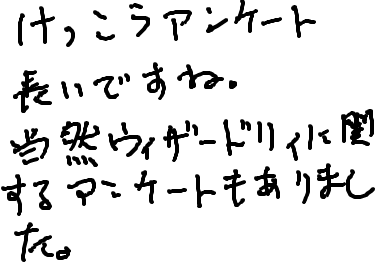 けっこうアンケート
長いですね。
当然ウィザードリィに関
するアンケートもありまし
た。